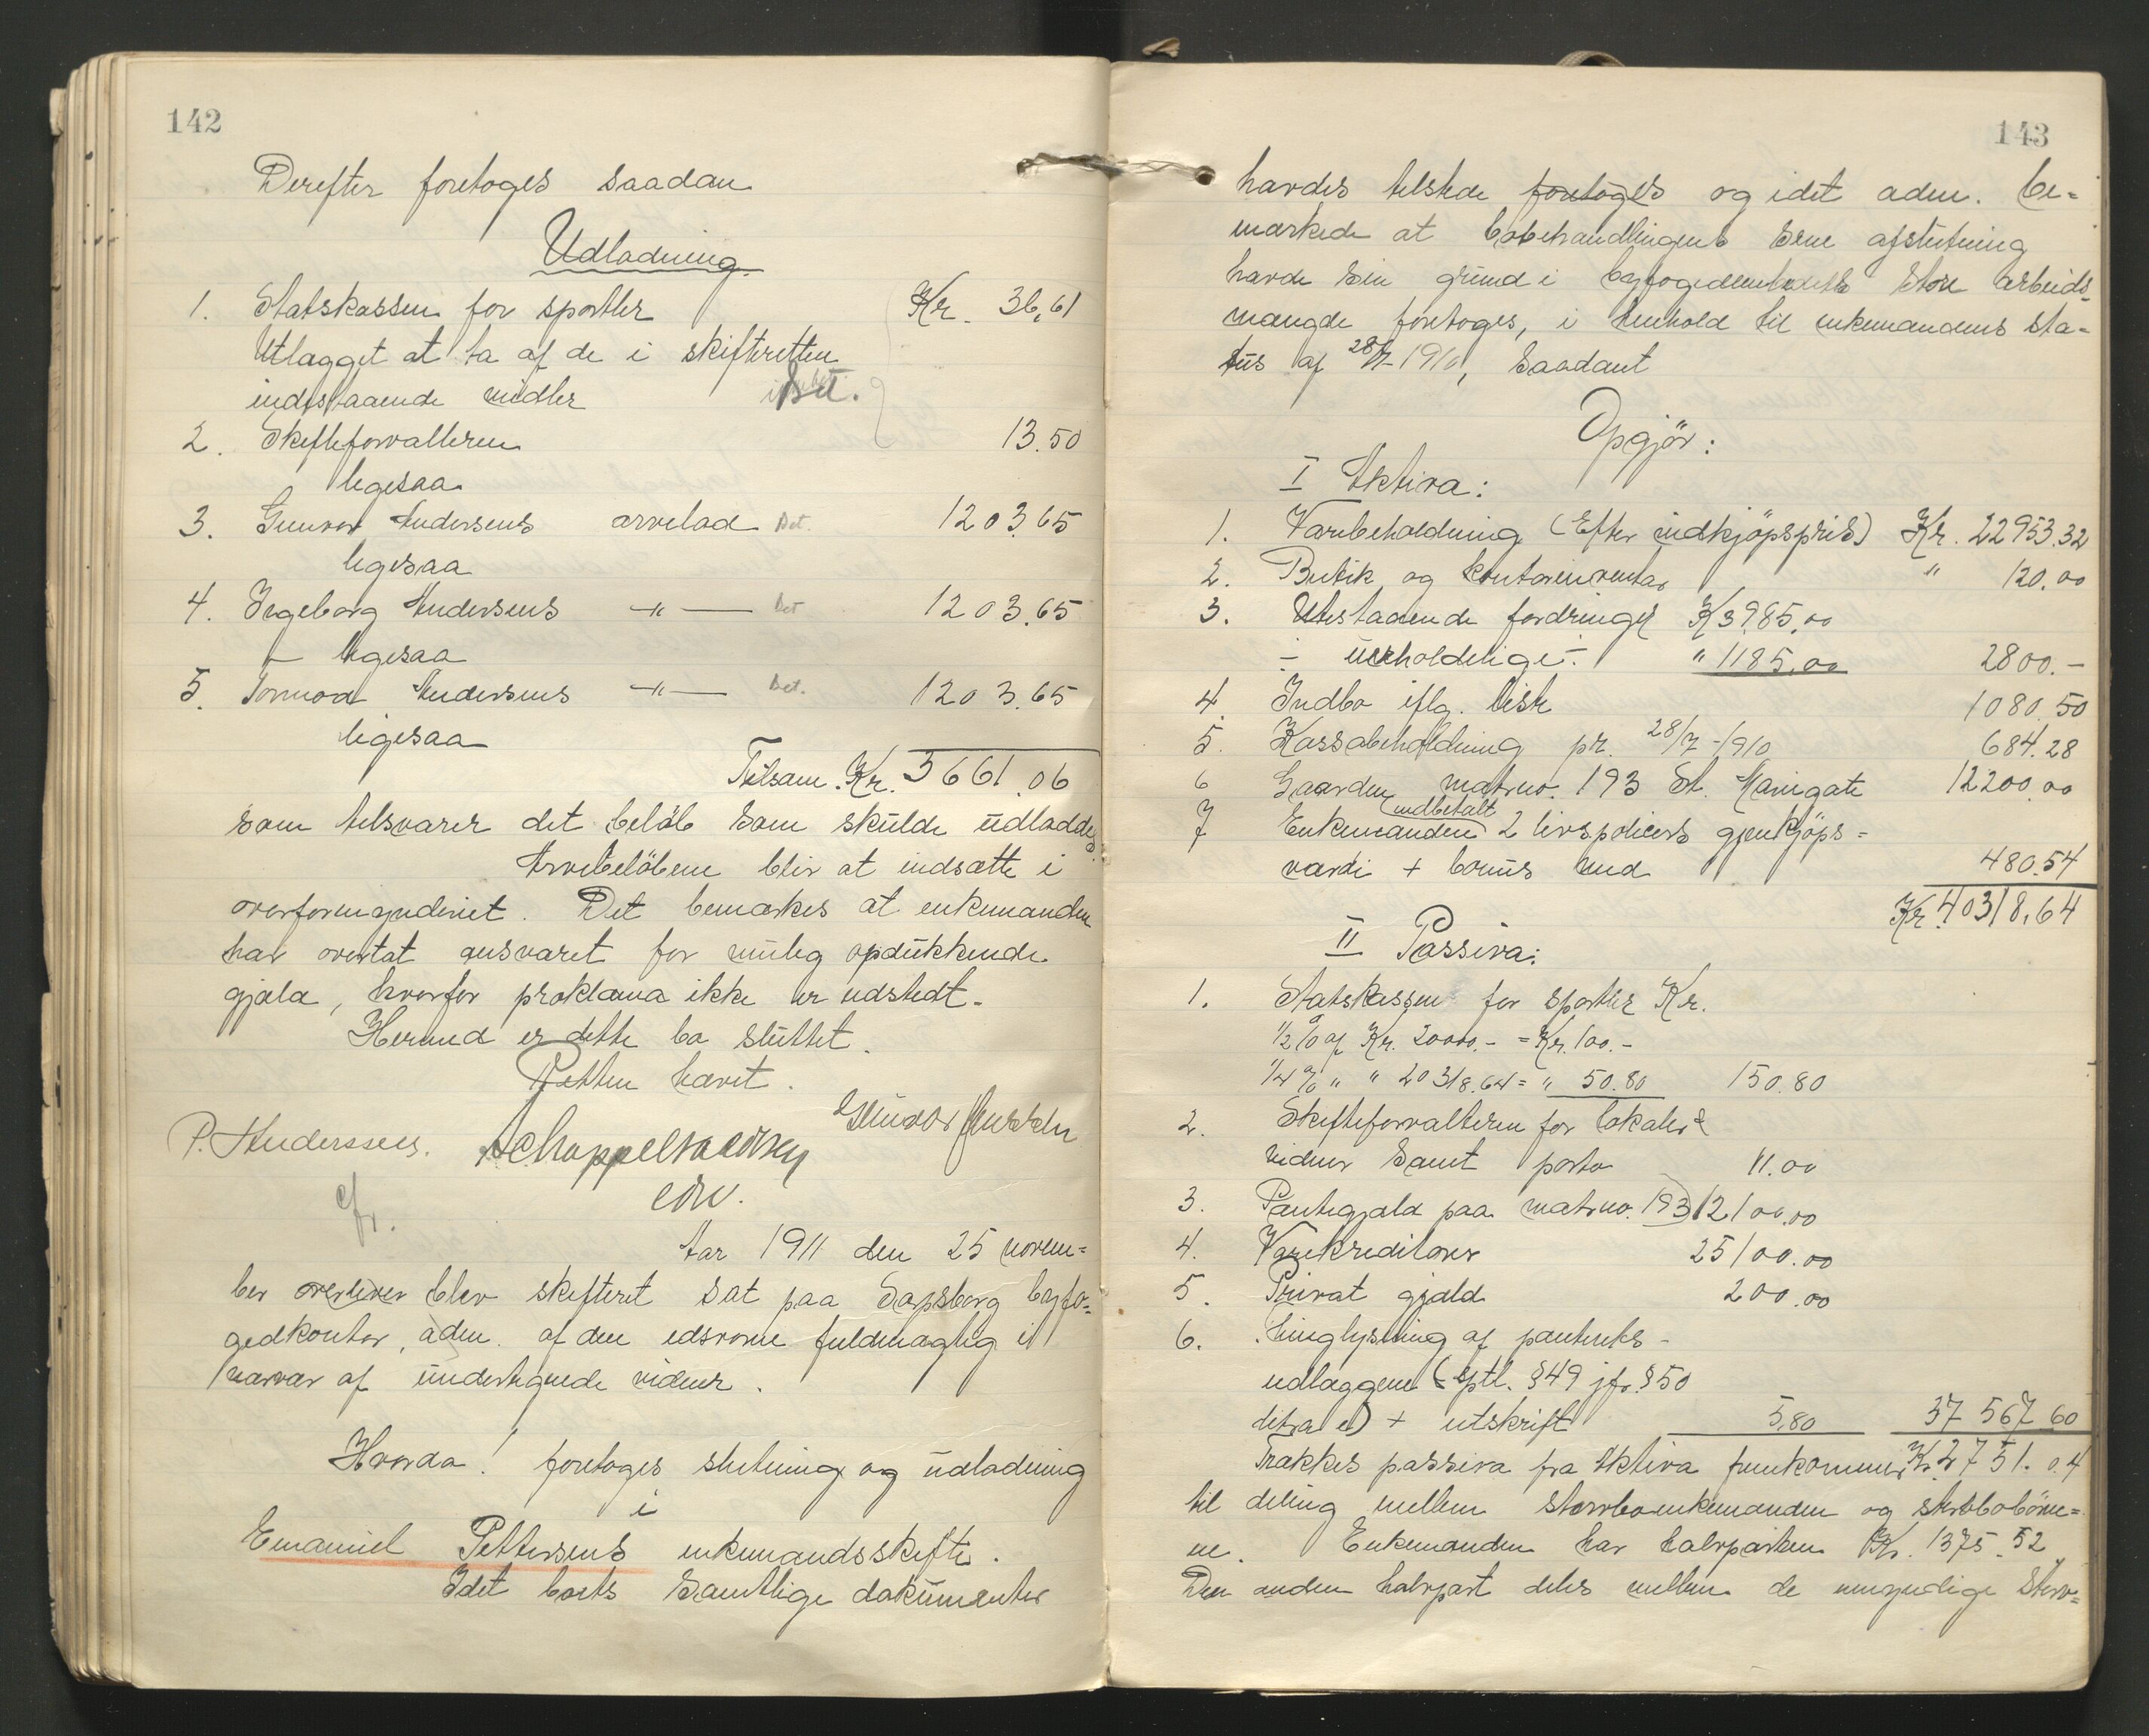 142
Derefter foretoges saadan
Udlodning.
1. Statskassen for sportler Kr. 36,61
Utlægget at ta af de i skifteretten
indestaaende midler Bet.
2. Skifteforvalteren 13.50
ligesaa
3. Gunvor Andersens arvelod Bet. 1203.65
ligesaa
4. Ingeborg Andersens —"— Bet 1203.65
— ligesaa
5. Tormod Andersens —"— Bet. 1203.65
ligesaa
Tilsam. Kr. 3661.06
som tilsvarer det beløb som skulde udloddes.
Arvebeløbene blir at indsætte i
overformynderiet. Det bemærkes at enkemanden
har overtat ansvaret for mulig opdukkende
gjæld, hvorfor proklama ikke er udstedt.
Hermed er dette bo sluttet.
Retten hævet.
P. Anderssen.
edv.
Aar 1911 den 25 novem=
ber blev skifteret sat paa Sarpsborg byfo=
gedkontor, adm. af den edsvorne fuldmægtig i
nærvær af undertegnede vidner.
Hvorda! foretoges slutning og udlodning
i
Emanuel Pettersens enkemandsskifte.
Idet boets samtlige dokumenter
143
havdes tilstede foretoges og idet adm. be=
mærkede at bobehandlingens sene afslutning
havde sin grund i byfogedembedets store arbeids=
mængde foretoges, i henhold til enkemandens sta=
tus af 28/7-1910, saadant
Opgjör:
I Aktiva:
1. Varebeholdning (Efter indkjöpspris) Kr. 22953.32
2. Butik og kontorinventar " 120.00
3. Utestaaende fordringer K 3985.00
÷ uerholdelige ÷ " 1185.00 2800.-
4. Indbo iflg. liste 1080.50
5. Kassabeholdning pr. 28/7-1910 684.28
6 Gaarden matrno. 193 St. Mariegate 12200.00
indbetalt
7 Enkemanden 2 livspolicers gjenkjöps=
værdi + bonus med 480.54
Kr. 40318,64
II Passiva:
1. Statskassen for sportler Kr.
1/2 % af Kr. 20000.- = Kr. 100.-
1/4 % " " 20318.64 = " 50.80 150.80
2. Skifteforvalteren for lokale &
vidner samt porto 11.00
3. Pantegjæld paa matrno. 193 12100.00
4. Varekreditorer 25100.00
5. Privat gjæld 200.00
6. Tinglysning af panterets-
udlæggene (sptl. § 49 jfr. § 50
litra e) + utskrift 5,80 37567 60
Trækkes passiva fra Aktiva fremkommer Kr. 2751.04
til deling mellem stervboenkemanden og stervbobörne=
ne. Enkemanden har halvparten Kr. 1375.52
Den anden halvpart deles mellem de umyndige Sterv=